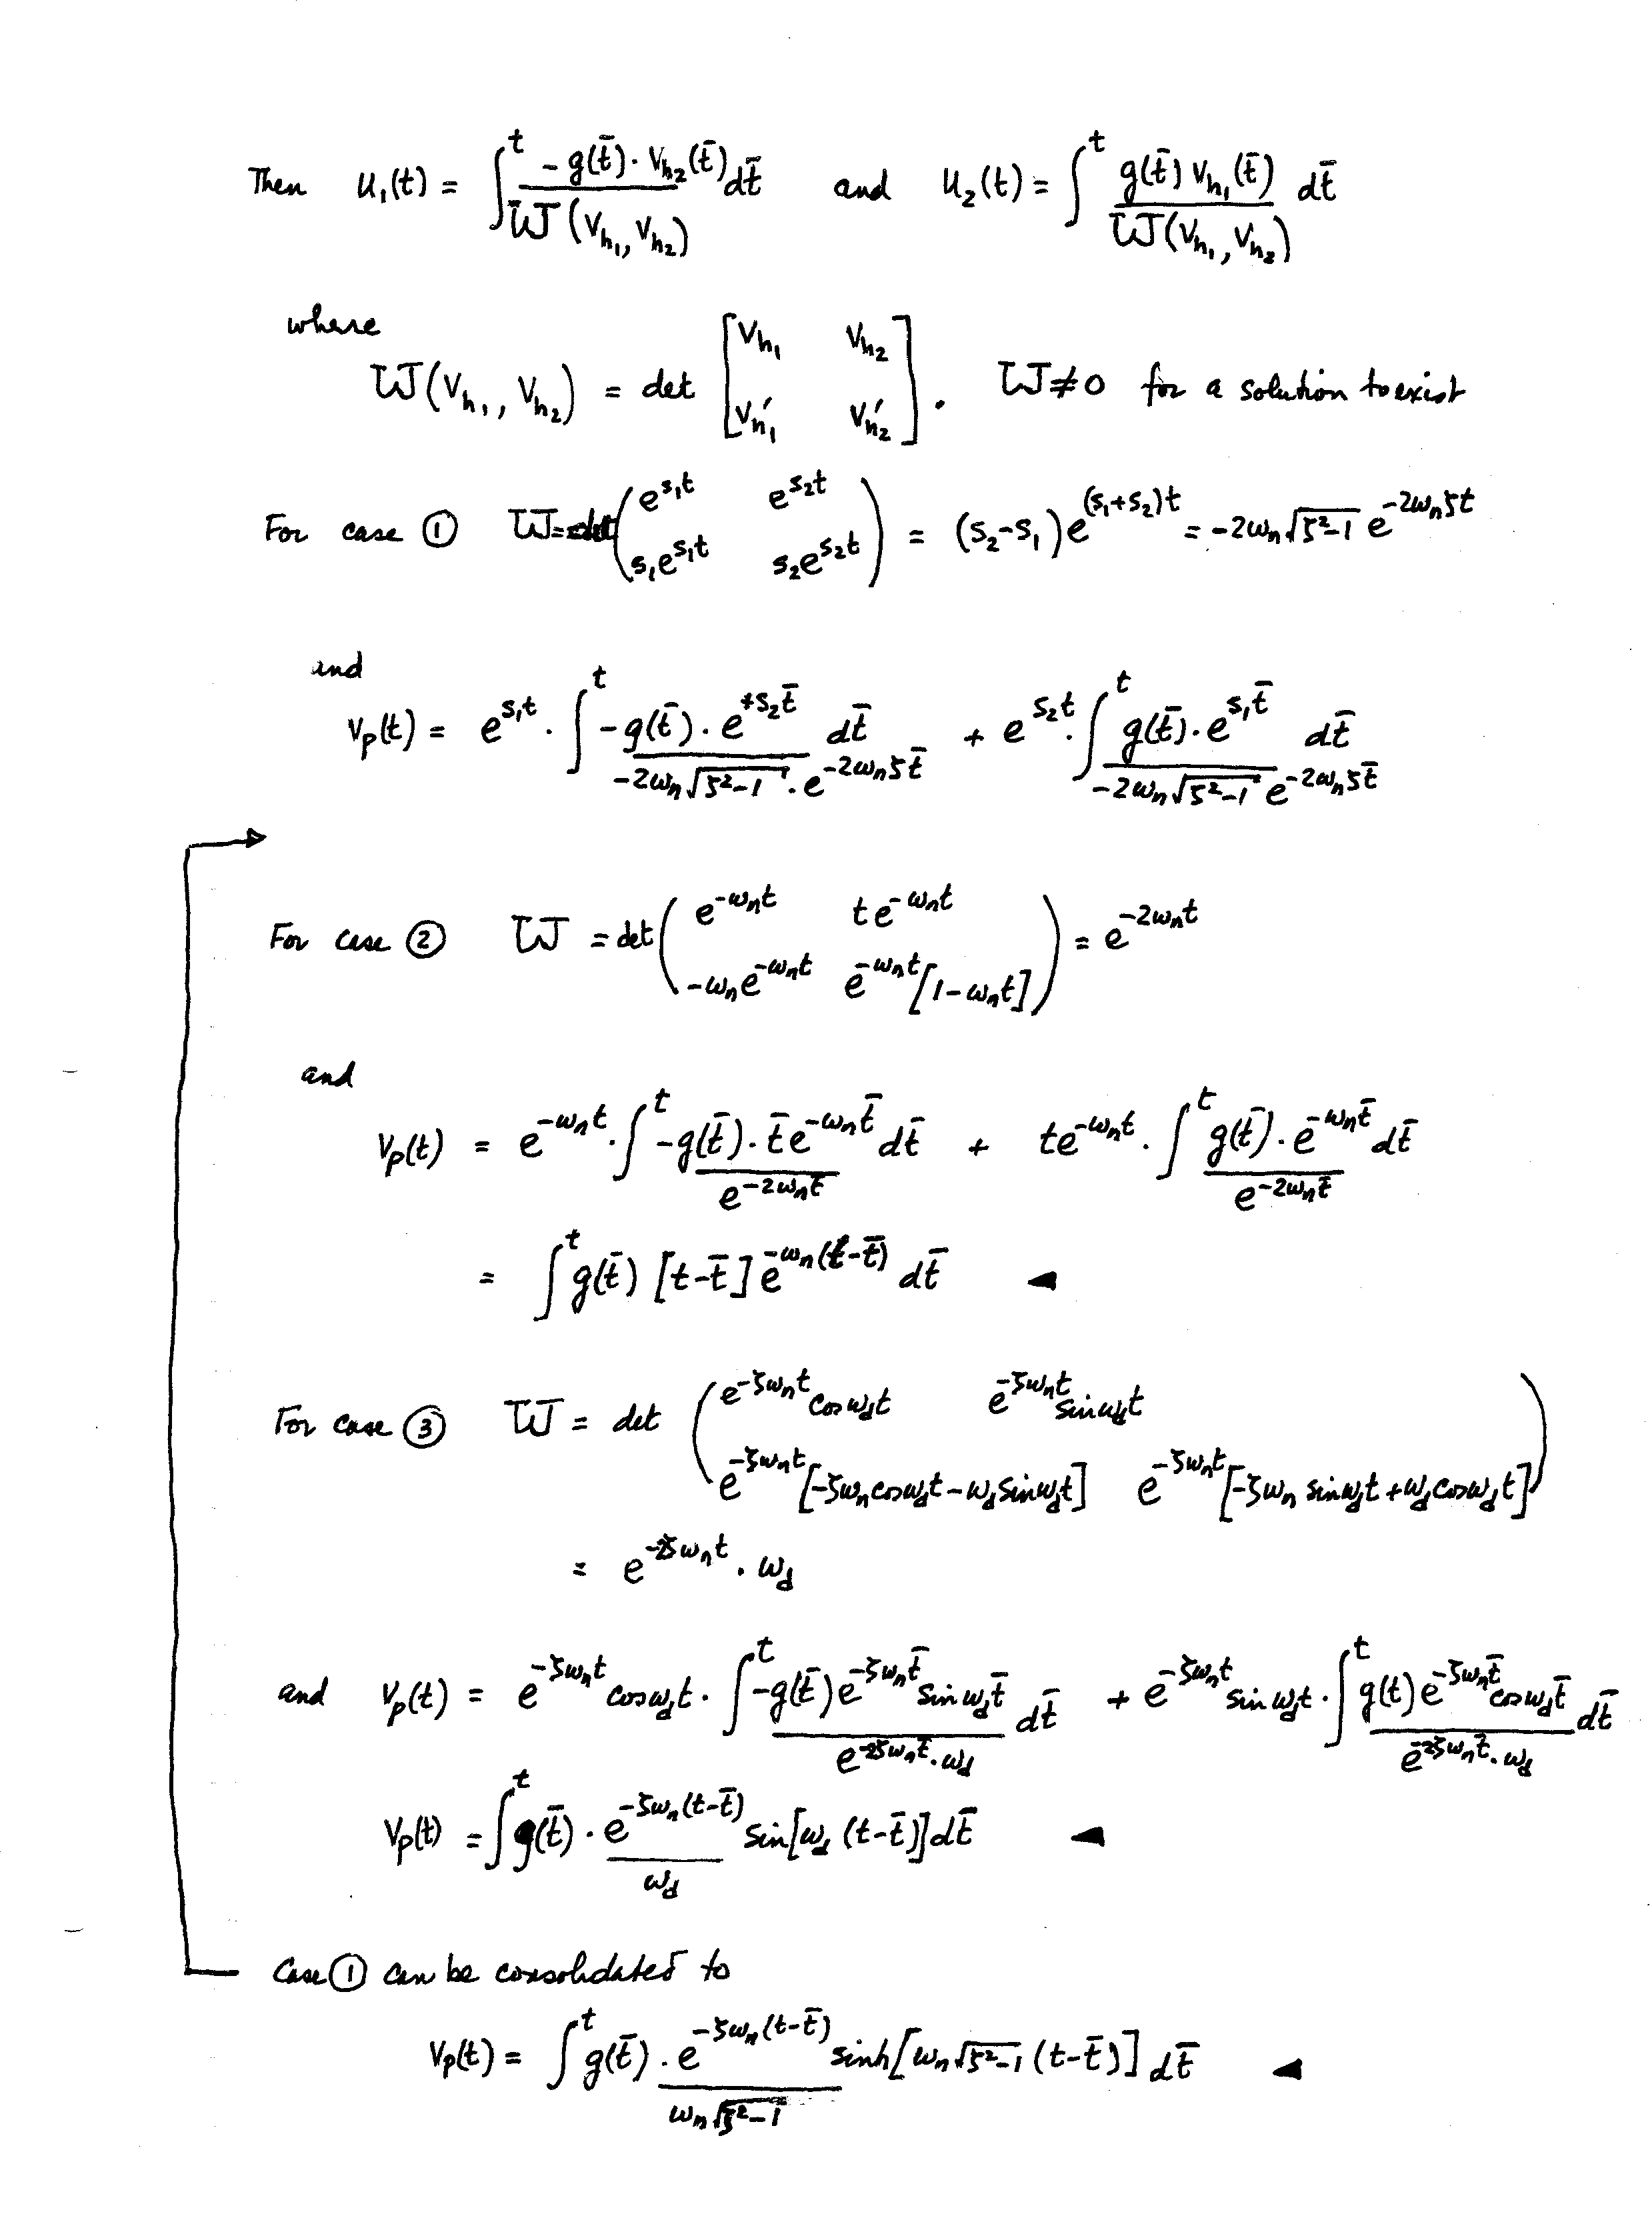 Then $u_1(t) = \int^t \frac{-g(\bar{t}) \cdot v_{h_2}(\bar{t})}{W(v_{h_1}, v_{h_2})} d\bar{t}$ and $u_2(t) = \int^t \frac{g(\bar{t}) v_{h_1}(\bar{t})}{W(v_{h_1}, v_{h_2})} d\bar{t}$
where
$W(v_{h_1}, v_{h_2}) = \det \begin{bmatrix} v_{h_1} & v_{h_2} \\ v_{h_1}' & v_{h_2}' \end{bmatrix}.$ $W \neq 0$ for a solution to exist
For case ① $W = \det \begin{pmatrix} e^{s_1 t} & e^{s_2 t} \\ s_1 e^{s_1 t} & s_2 e^{s_2 t} \end{pmatrix} = (s_2 - s_1) e^{(s_1 + s_2)t} = -2\omega_n \sqrt{\zeta^2 - 1} \, e^{-2\omega_n \zeta t}$
and
$v_p(t) = e^{s_1 t} \cdot \int^t \frac{-g(\bar{t}) \cdot e^{+s_2 \bar{t}}}{-2\omega_n \sqrt{\zeta^2 - 1} \cdot e^{-2\omega_n \zeta \bar{t}}} d\bar{t} + e^{s_2 t} \cdot \int^t \frac{g(\bar{t}) \cdot e^{s_1 \bar{t}}}{-2\omega_n \sqrt{\zeta^2 - 1} \, e^{-2\omega_n \zeta \bar{t}}} d\bar{t}$
For case ② $W = \det \begin{pmatrix} e^{-\omega_n t} & t e^{-\omega_n t} \\ -\omega_n e^{-\omega_n t} & e^{-\omega_n t} [1 - \omega_n t] \end{pmatrix} = e^{-2\omega_n t}$
and
$v_p(t) = e^{-\omega_n t} \cdot \int^t \frac{-g(\bar{t}) \cdot \bar{t} e^{-\omega_n \bar{t}}}{e^{-2\omega_n \bar{t}}} d\bar{t} + t e^{-\omega_n t} \cdot \int^t \frac{g(\bar{t}) \cdot e^{-\omega_n \bar{t}}}{e^{-2\omega_n \bar{t}}} d\bar{t}$
$= \int^t g(\bar{t}) [t - \bar{t}] e^{-\omega_n (t - \bar{t})} d\bar{t}$ ◄
For case ③ $W = \det \begin{pmatrix} e^{-\zeta\omega_n t} \cos \omega_d t & e^{-\zeta\omega_n t} \sin \omega_d t \\ e^{-\zeta\omega_n t} [-\zeta\omega_n \cos \omega_d t - \omega_d \sin \omega_d t] & e^{-\zeta\omega_n t} [-\zeta\omega_n \sin \omega_d t + \omega_d \cos \omega_d t] \end{pmatrix}$
$= e^{-2\zeta\omega_n t} \cdot \omega_d$
and $v_p(t) = e^{-\zeta\omega_n t} \cos \omega_d t \cdot \int^t \frac{-g(\bar{t}) e^{-\zeta\omega_n \bar{t}} \sin \omega_d \bar{t}}{e^{-2\zeta\omega_n \bar{t}} \cdot \omega_d} d\bar{t} + e^{-\zeta\omega_n t} \sin \omega_d t \cdot \int^t \frac{g(t) e^{-\zeta\omega_n \bar{t}} \cos \omega_d \bar{t}}{e^{-2\zeta\omega_n \bar{t}} \cdot \omega_d} d\bar{t}$
$v_p(t) = \int^t g(\bar{t}) \cdot \frac{e^{-\zeta\omega_n (t - \bar{t})}}{\omega_d} \sin[\omega_d (t - \bar{t})] d\bar{t}$ ◄
Case ① can be consolidated to
$v_p(t) = \int^t g(\bar{t}) \cdot \frac{e^{-\zeta\omega_n (t - \bar{t})}}{\omega_n \sqrt{\zeta^2 - 1}} \sinh[\omega_n \sqrt{\zeta^2 - 1} (t - \bar{t})] d\bar{t}$ ◄